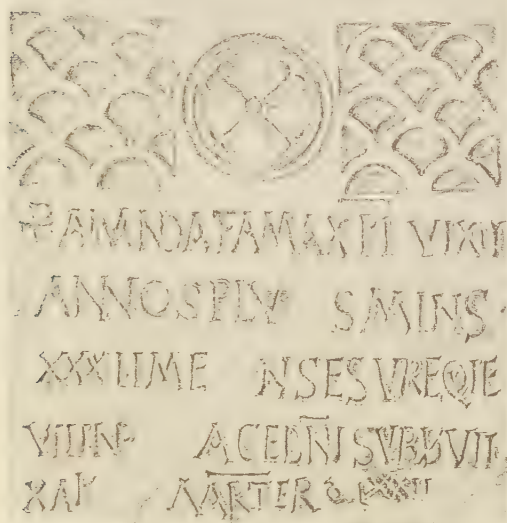 AMANDA FAMA XPI VIXIT
ANNOS PLV S MINS
XXXII ME NSES V REQIE
VIT IN P ACE DNI SVB D VII
KAL MARTER